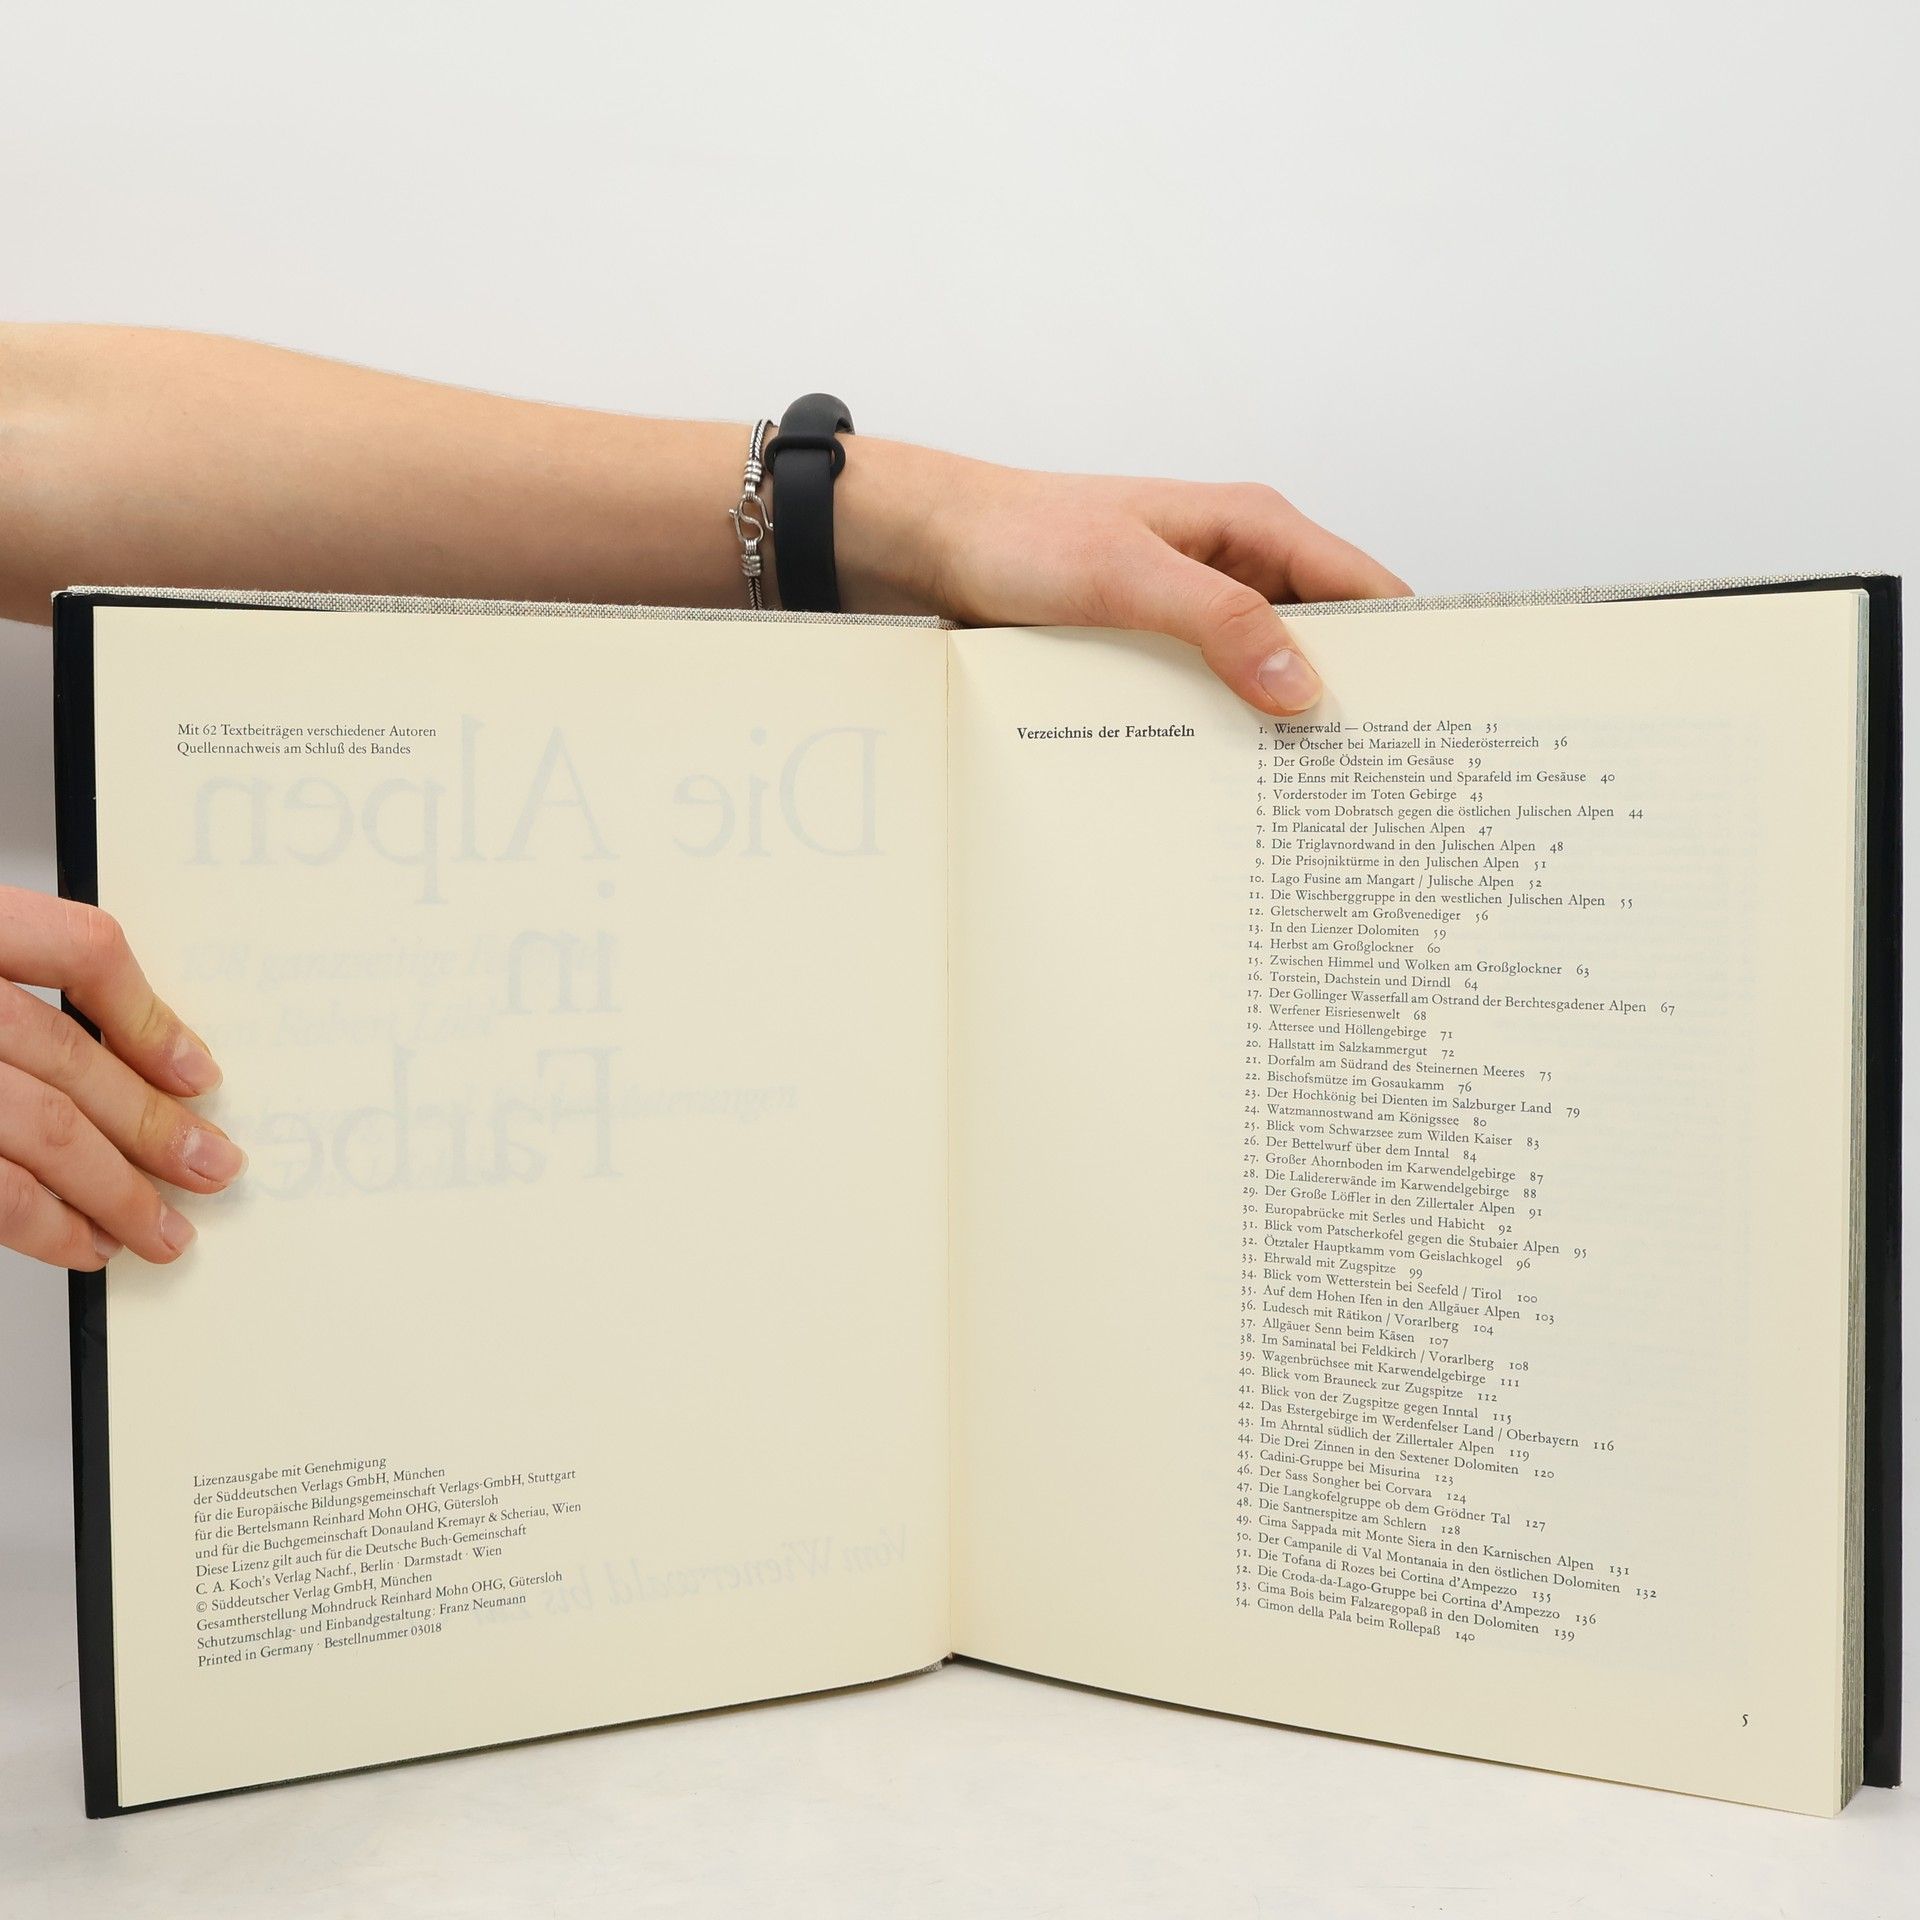 Mit 62 Textbeiträgen verschiedener Autoren
Quellennachweis am Schluß des Bandes
Die Alpen
in
Farben
Vom Wienerwald bis zur
Lizenzausgabe mit Genehmigung
der Süddeutschen Verlags GmbH, München
für die Europäische Bildungsgemeinschaft Verlags-GmbH, Stuttgart
für die Bertelsmann Reinhard Mohn OHG, Gütersloh
und für die Buchgemeinschaft Donauland Kremayr & Scheriau, Wien
Diese Lizenz gilt auch für die Deutsche Buch-Gemeinschaft
C. A. Koch's Verlag Nachf., Berlin · Darmstadt · Wien
© Süddeutscher Verlag GmbH, München
Gesamtherstellung Mohndruck Reinhard Mohn OHG, Gütersloh
Schutzumschlag- und Einbandgestaltung: Franz Neumann
Printed in Germany · Bestellnummer 03018
Verzeichnis der Farbtafeln
1. Wienerwald — Ostrand der Alpen 35
2. Der Ötscher bei Mariazell in Niederösterreich 36
3. Der Große Ödstein im Gesäuse 39
4. Die Enns mit Reichenstein und Sparafeld im Gesäuse 40
5. Vorderstoder im Toten Gebirge 43
6. Blick vom Dobratsch gegen die östlichen Julischen Alpen 44
7. Im Planicatal der Julischen Alpen 47
8. Die Triglavnordwand in den Julischen Alpen 48
9. Die Prisojniktürme in den Julischen Alpen 51
10. Lago Fusine am Mangart / Julische Alpen 52
11. Die Wischberggruppe in den westlichen Julischen Alpen 55
12. Gletscherwelt am Großvenediger 56
13. In den Lienzer Dolomiten 59
14. Herbst am Großglockner 60
15. Zwischen Himmel und Wolken am Großglockner 63
16. Torstein, Dachstein und Dirndl 64
17. Der Gollinger Wasserfall am Ostrand der Berchtesgadener Alpen 67
18. Werfener Eisriesenwelt 68
19. Attersee und Höllengebirge 71
20. Hallstatt im Salzkammergut 72
21. Dorfalm am Südrand des Steinernen Meeres 75
22. Bischofsmütze im Gosaukamm 76
23. Der Hochkönig bei Dienten im Salzburger Land 79
24. Watzmannostwand am Königssee 80
25. Blick vom Schwarzsee zum Wilden Kaiser 83
26. Der Bettelwurf über dem Inntal 84
27. Großer Ahornboden im Karwendelgebirge 87
28. Die Lalidererwände im Karwendelgebirge 88
29. Der Große Löffler in den Zillertaler Alpen 91
30. Europabrücke mit Serles und Habicht 92
31. Blick vom Patscherkofel gegen die Stubaier Alpen 95
32. Ötztaler Hauptkamm vom Geislachkogel 96
33. Ehrwald mit Zugspitze 99
34. Blick vom Wetterstein bei Seefeld / Tirol 100
35. Auf dem Hohen Ifen in den Allgäuer Alpen 103
36. Ludesch mit Rätikon / Vorarlberg 104
37. Allgäuer Senn beim Käsen 107
38. Im Saminatal bei Feldkirch / Vorarlberg 108
39. Wagenbrüchsee mit Karwendelgebirge 111
40. Blick vom Brauneck zur Zugspitze 112
41. Blick von der Zugspitze gegen Inntal 115
42. Das Estergebirge im Werdenfelser Land / Oberbayern 116
43. Im Ahrntal südlich der Zillertaler Alpen 119
44. Die Drei Zinnen in den Sextener Dolomiten 120
45. Cadini-Gruppe bei Misurina 123
46. Der Sass Songher bei Corvara 124
47. Die Langkofelgruppe ob dem Grödner Tal 127
48. Die Santnerspitze am Schlern 128
49. Cima Sappada mit Monte Siera in den Karnischen Alpen 131
50. Der Campanile di Val Montanaia in den östlichen Dolomiten 132
51. Die Tofana di Rozes bei Cortina d'Ampezzo 135
52. Die Croda-da-Lago-Gruppe bei Cortina d'Ampezzo 136
53. Cima Bois beim Falzaregopaß in den Dolomiten 139
54. Cimon della Pala beim Rollepaß 140
5